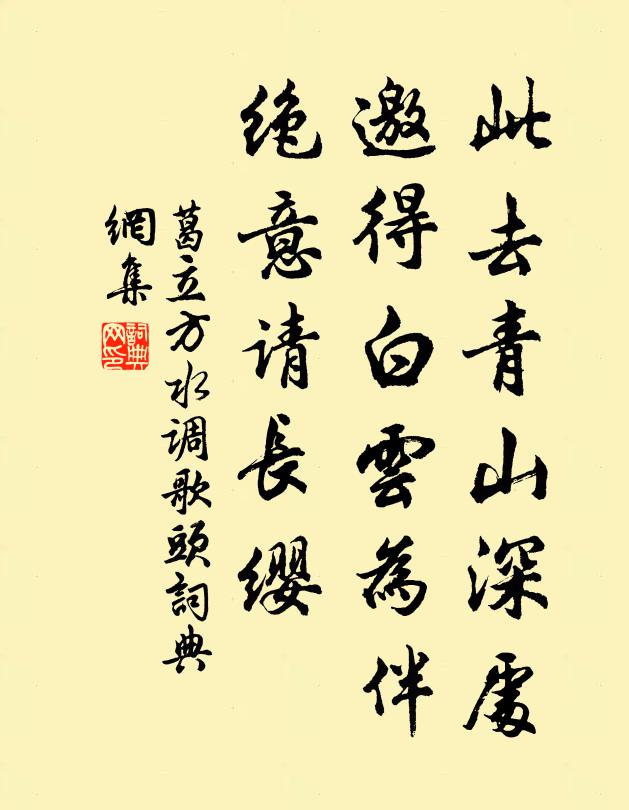 此去青山深處
邀得白雲為伴
絶意请長缨
葛立方水调歌頭詞典
網集
詞典
网印